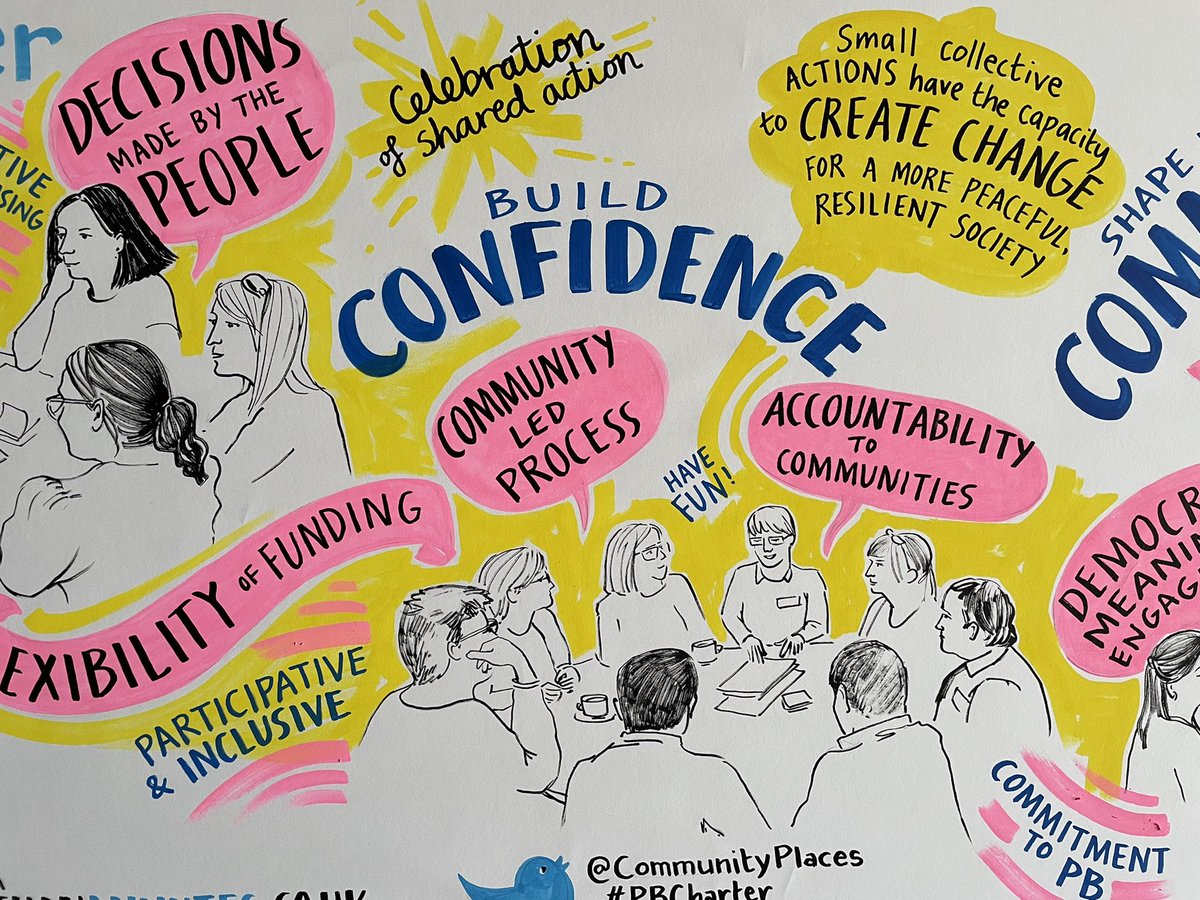 er
DECISIONS
MADE BY THE
PEOPLE
Celebration
of shared action
Small collective
ACTIONS have the capacity
to CREATE CHANGE
FOR A MORE PEACEFUL,
RESILIENT SOCIETY
BUILD
CONFIDENCE
SHAPE
COMM
COMMUNITY
LED
PROCESS
HAVE
FUN!
ACCOUNTABILITY
TO
COMMUNITIES
EXIBILITY OF FUNDING
PARTICIPATIVE
& INCLUSIVE
DEMOCR
MEANIN
ENGAG
COMMITMENT
TO PB
@CommunityPlaces
#PBCharter